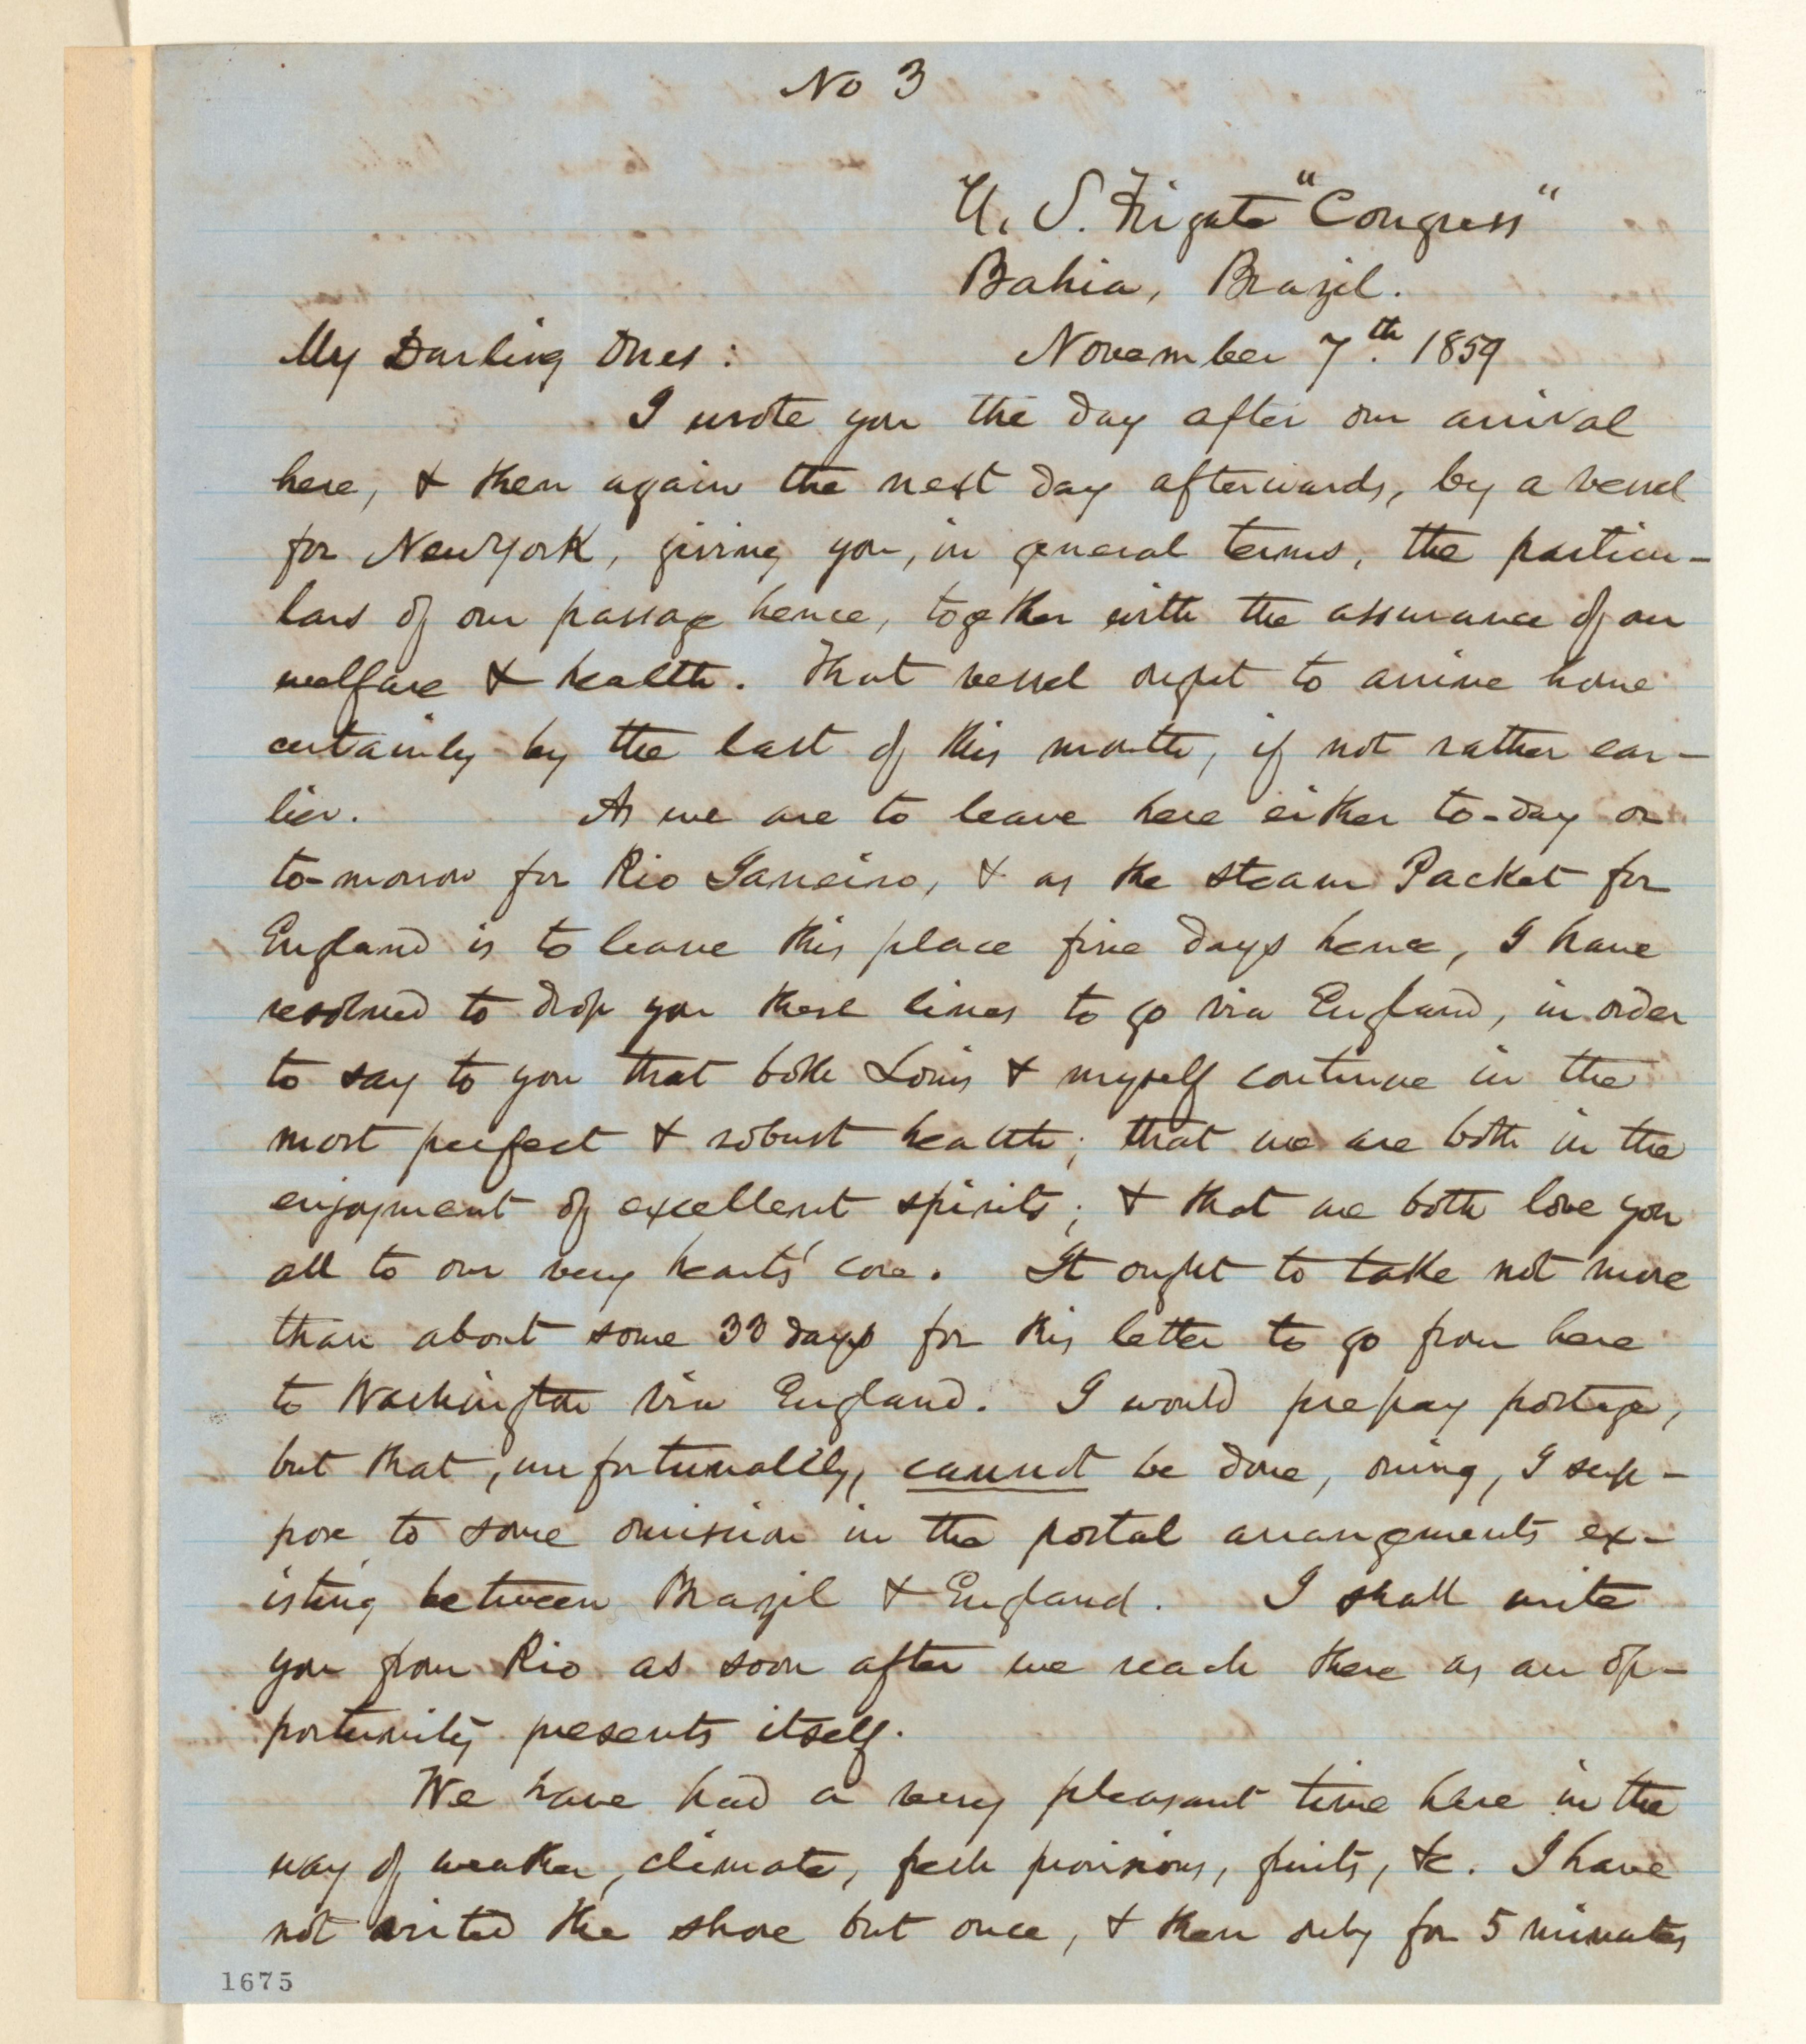 No 3
U. S. Frigate "Congress"
Bahia, Brazil.
My Darling Ones:
November 7th. 1859
I wrote you the day after our arrival
here, & then again the next day afterwards, by a vessel
for New York, giving you, in general terms, the particu-
lars of our passage hence, together with the assurance of our
welfare & health. That vessel ought to arrive home
certainly by the last of this month, if not rather ear-
lier. As we are to leave here either to-day or
to-morrow for Rio Janeiro, & as the steam Packet for
England is to leave this place five days hence, I have
resolved to drop you these lines to go via England, in order
to say to you that both Louis & myself continue in the
most perfect & robust health; that we are both in the
enjoyment of excellent spirits; & that we both love you
all to our very hearts' core. It ought to take not more
than about some 33 days for this letter to go from here
to Washington via England. I would prepay postage,
but that, unfortunately, cannot be done, owing, I sup-
pose to some omission in the postal arrangments ex-
isting between Brazil & England. I shall write
you from Rio as soon after we reach there as an op-
portunity presents itself.
We have had a very pleasant time here in the
way of weather, climate, fresh provisions, fruits, &c. I have
not visited the shore but once, & then only for 5 minutes
1675